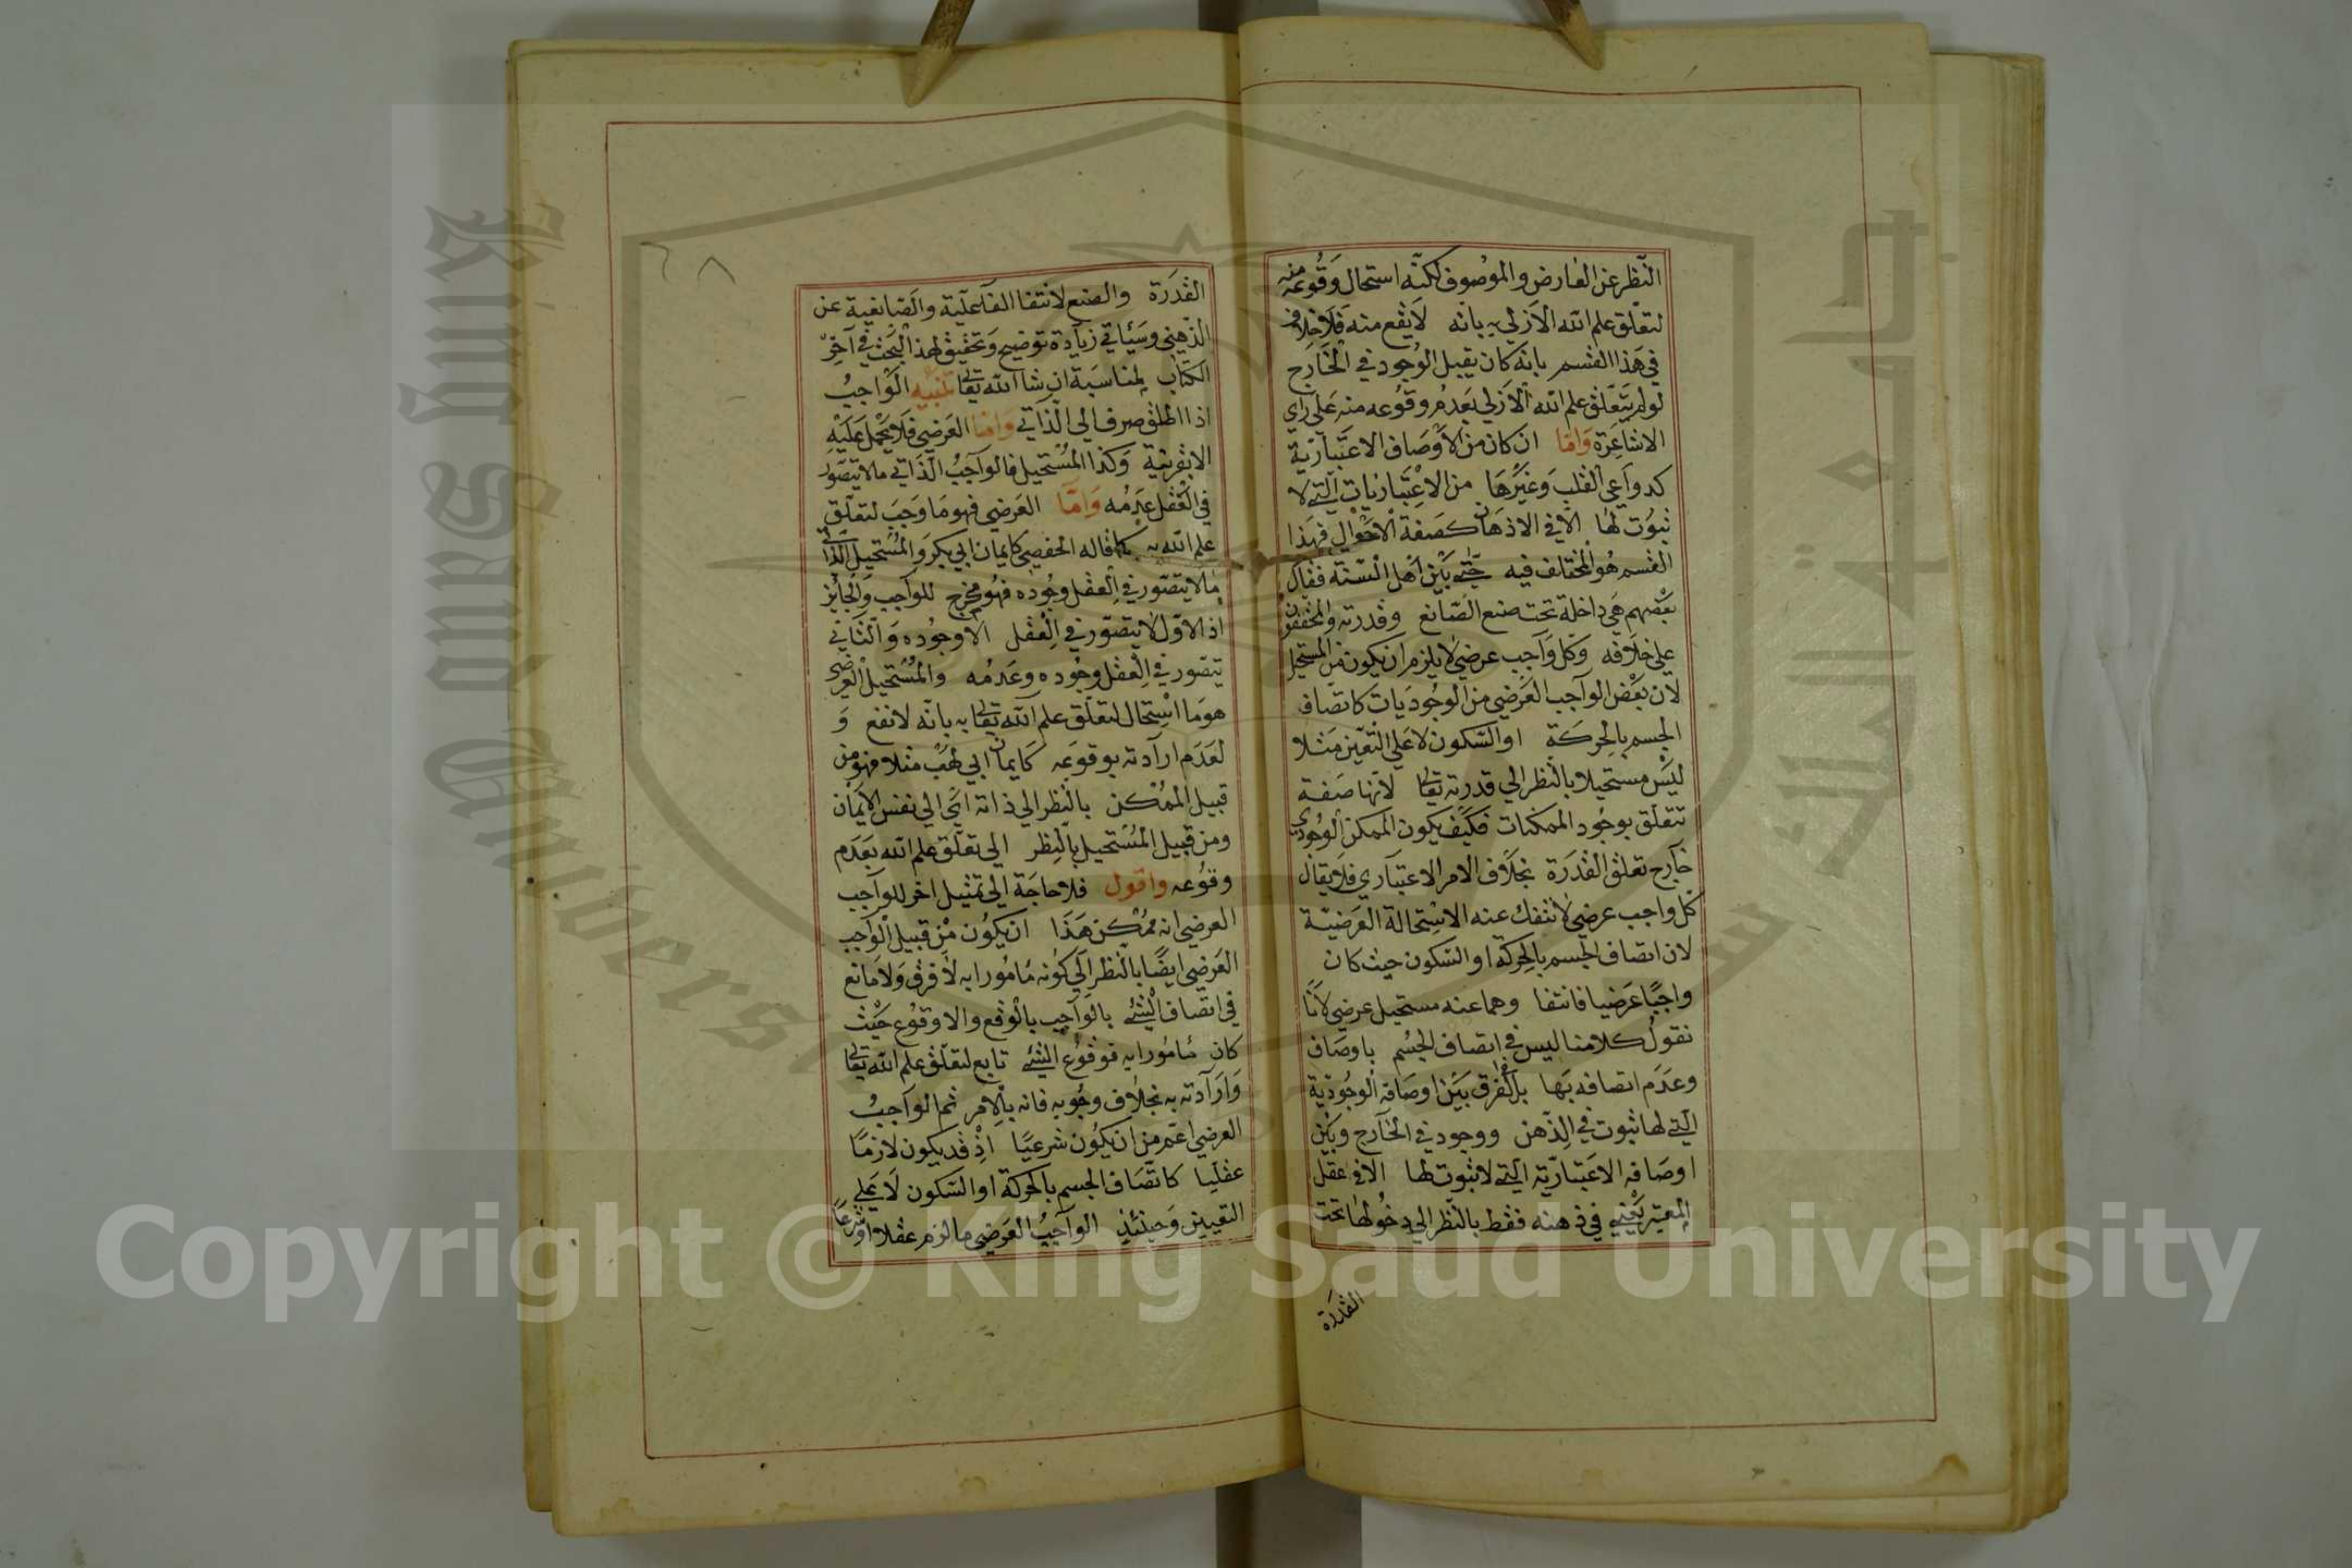 النظر عن العارض والموصوف لكنه استحال وقوعه منه
لتعلق علم الله الازلي به بانه لا يقع منه فلا خلاف
في هذا القسم بانه كان يقبل الوجود في الخارج
لو لم يتعلق علم الله الازلي بعدم وقوعه منه على راي
الاشاعرة واما ان كان من الاوصاف الاعتبارية
كدواعي القلب وغيرها من الاعتباريات التي لا
ثبوت لها الا في الاذهان كصفة الاحوال فهذا
القسم هو المختلف فيه حتى بين اهل السنة فقال
بعضهم هي داخلة تحت صنع الصانع وقدرته والمحققون
على خلافه وكل واجب عرضي لا يلزم ان يكون من المستحيل
لان بعض الواجب العرضي من الوجوديات كاتصاف
الجسم بالحركة او السكون لا على التعين مثلا
ليس مستحيلا بالنظر الى قدرته تعالى لانها صفة
تتعلق بوجود الممكنات فكيف يكون الممكن الوجودي
خارج تعلق القدرة بخلاف الامر الاعتباري فلا يقال
كل واجب عرضي لا تنفك عنه الاستحالة العرضية
لان اتصاف الجسم بالحركة او السكون حيث كان
واجبا عرضيا فانتفا وهما عنه مستحيل عرضي لانا
نقول كلامنا ليس في اتصاف الجسم باوصاف
وعدم اتصافه بها بل الفرق بين اوصافه الوجودية
التي لها ثبوت في الذهن ووجود في الخارج وبين
اوصافه الاعتبارية التي لا ثبوت لها الا في عقل
المعتبر يعني في ذهنه فقط بالنظر الى دخولها تحت
القدرة
٦٨
القدرة والصنع لانتفا الفاعلية والصانعية عن
الذهني وسياتي زيادة توضيح وتحقيق لهذا البحث في آخر
الكتاب لمناسبة ان شا الله تعالى تنبيه الواجب
اذا اطلق صرف الى الذاتي واما العرضي فلا يحمل عليه
الا بقرينة وكذا المستحيل فالواجب الذاتي ما لا يتصور
في العقل عدمه واما العرضي فهو ما وجب لتعلق
علم الله به كما قاله الحفصي كايمان ابي بكر والمستحيل الذاتي
ما لا يتصور في العقل وجوده فهو مخرج للواجب والجائز
اذ الاول لا يتصور في العقل الا وجوده والثاني
يتصور في العقل وجوده وعدمه والمستحيل العرضي
هو ما استحال لتعلق علم الله تعالى به بانه لا نقع و
لعدم ارادته بوقوعه كايمان ابي لهب مثلا فهو من
قبيل الممكن بالنظر الى ذاته اي الى نفس الايمان
ومن قبيل المستحيل بالنظر الى تعلق علم الله بعدم
وقوعه واقول فلا حاجة الى تمثيل اخر للواجب
العرضي انه ممكن هذا ان يكون من قبيل الواجب
العرضي ايضا بالنظر الى كونه مامورا به لا فرق ولا مانع
في اتصاف الشئ بالواجب بالوقع والا وقوع حيث
كان مامورا به فوقوع الشئ تابع لتعلق علم الله تعالى
وارادته به بخلاف وجوبه فانه بالامر ثم الواجب
العرضي اعم من ان يكون شرعيا اذ قد يكون لازما
عقليا كاتصاف الجسم بالحركة او السكون لا على
التعيين وحينئذ الواجب العرضي ما لزم عقلا او شرعا
King Saud University
Copyright © King Saud University